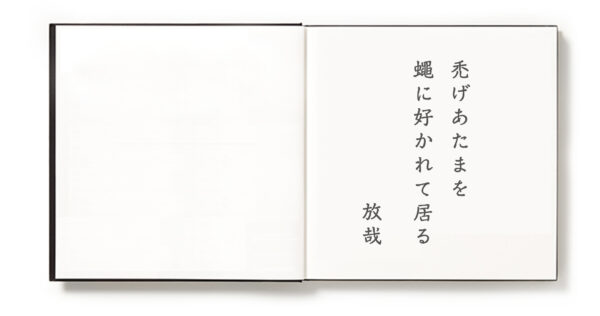 禿げあたまを
蠅に好かれて居る
放哉